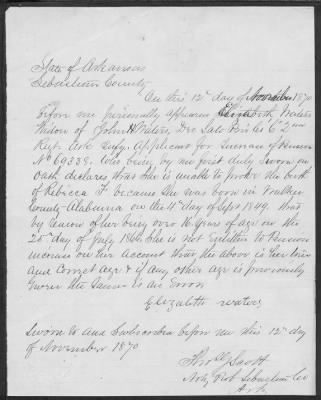 State of Arkansas
Sebastian County
On this 12 day of November 1870
before me personally appeared Elizabeth Waters
Widow of John H Waters, Dec Late Co C 2nd
Regt Ark Infy. Applicant for Increase of Pension
No 69338. Who being by me first duly Sworn on
oath declares that She is unable to prove the birth
of Rebecca F. because She was born in
County Alabama on the 4th day of Sept 1849. that
by reason of her being over 16 years of age on the
25th day of July 1866 She is not Entitled to Pension
increase on her account that the above is her true
and Correct age & if any other age is previously
the Same is an Error
Elizabeth Waters
Sworn to and Subscribed before me this 12 day
of November 1870
Scott
Noty Pub Sebastian Co
Ark